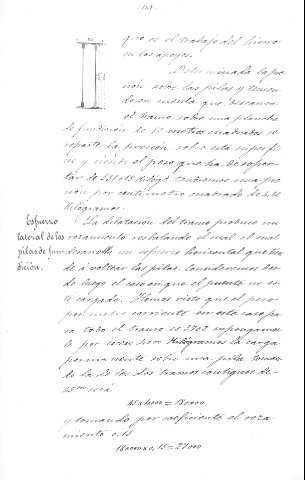 que es el trabajo del hierro
en los apoyos.
Determinada la pre
sión sobre las pilas y tenien
do en cuenta que descansa
el tramo sobre una plancha
de fundición de metros cuadrados se
reparte la presión sobre esta superfi
cie y siendo el peso que ha de sopor
tar de tendremos una pre
sión por centímetro cuadrado de
Kilogramos.
Esfuerzo
lateral de las
pilas de fun
dición.
La dilatación del tramo produce un
rozamiento resbalando el cual el cual
desarrolla un esfuerzo horizontal que tien
de á voltear las pilas. Consideremos des
de luego el caso en que el puente no es
té cargado. Hemos visto que el peso
por metro corriente en este caso pa
ra todo el tramo es 3902 supongamos
lo por exceso 4000 Kilogramos la carga
permanente sobre una pila toman
do la de los dos tramos contiguos de
45m será
45 x 4000 = 180000
y tomando por coeficiente el roza
miento 0,15
180000 x 0,15 = 27000